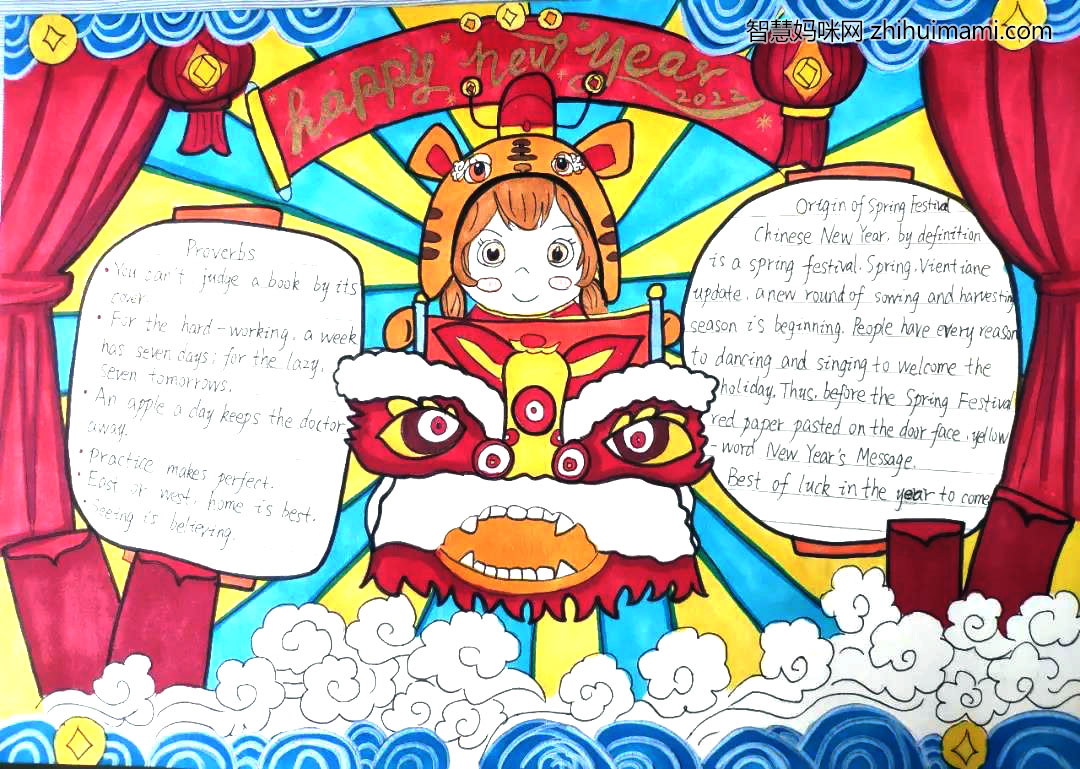 智慧妈咪网 zhihuimami.com
happy new year
2022
Proverbs
• You can't judge a book by its
cover.
• For the hard-working, a week
has seven days; for the lazy,
seven tomorrows.
• An apple a day keeps the doctor
away.
• Practice makes perfect.
• East or west, home is best.
• Seeing is believing.
Origin of Spring Festival
Chinese New Year, by definition
is a spring festival. Spring, Vientiane
update, a new round of sowing and harvesting
season is beginning. People have every reason
to dancing and singing to welcome the
holiday. Thus, before the Spring Festival
red paper pasted on the door face, yellow
-word New Year's Message.
Best of luck in the year to come